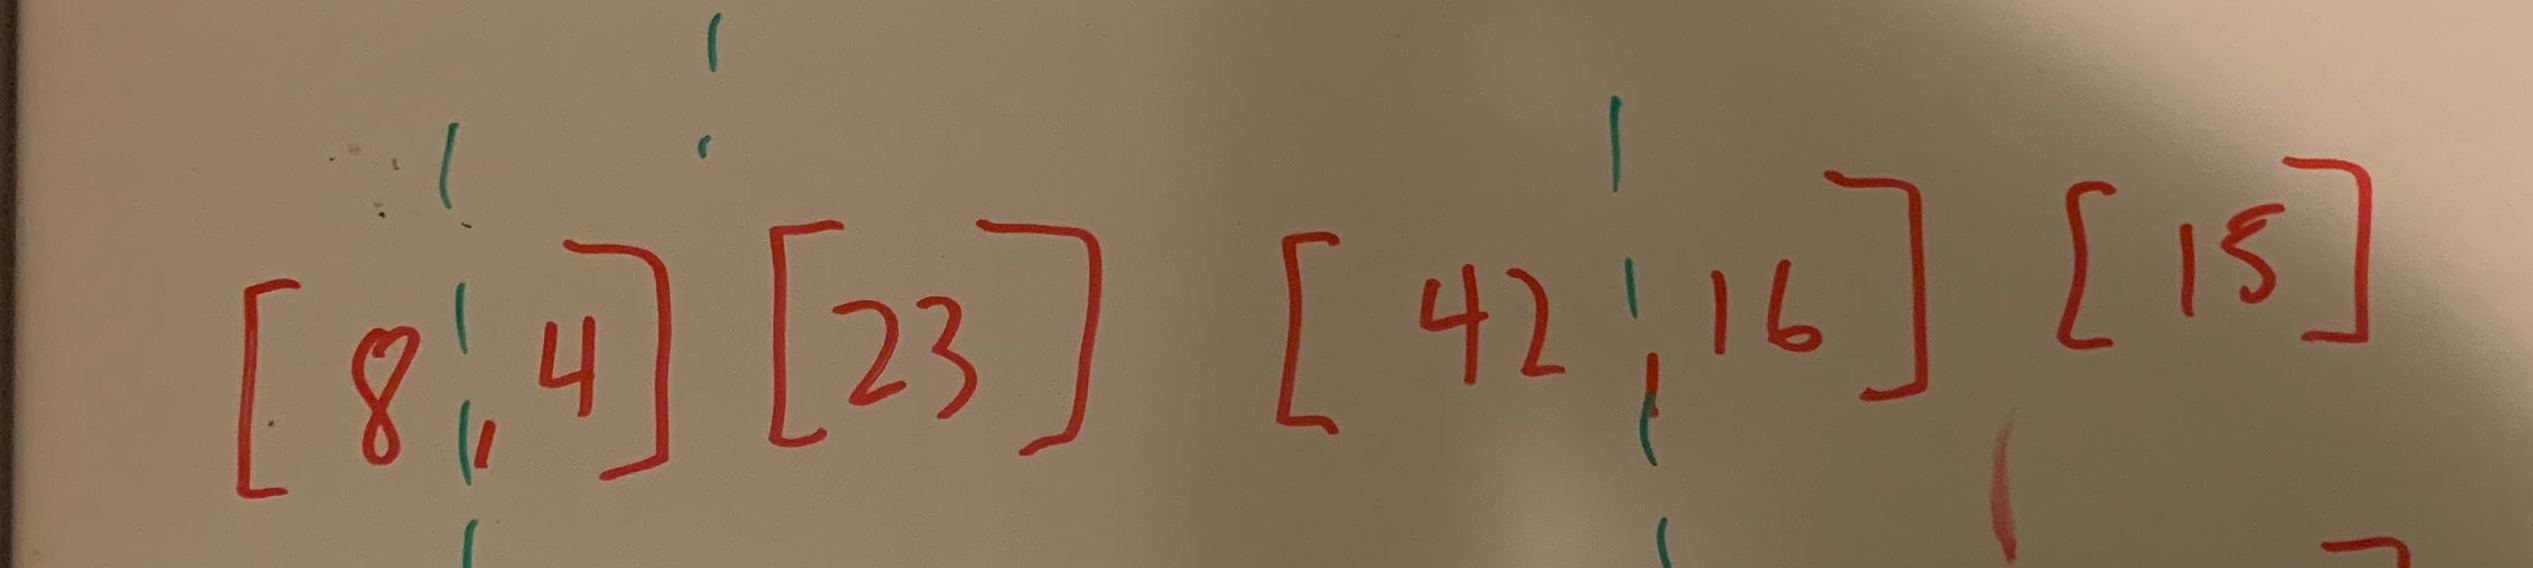 [8, 4] [23] [42, 16] [15]